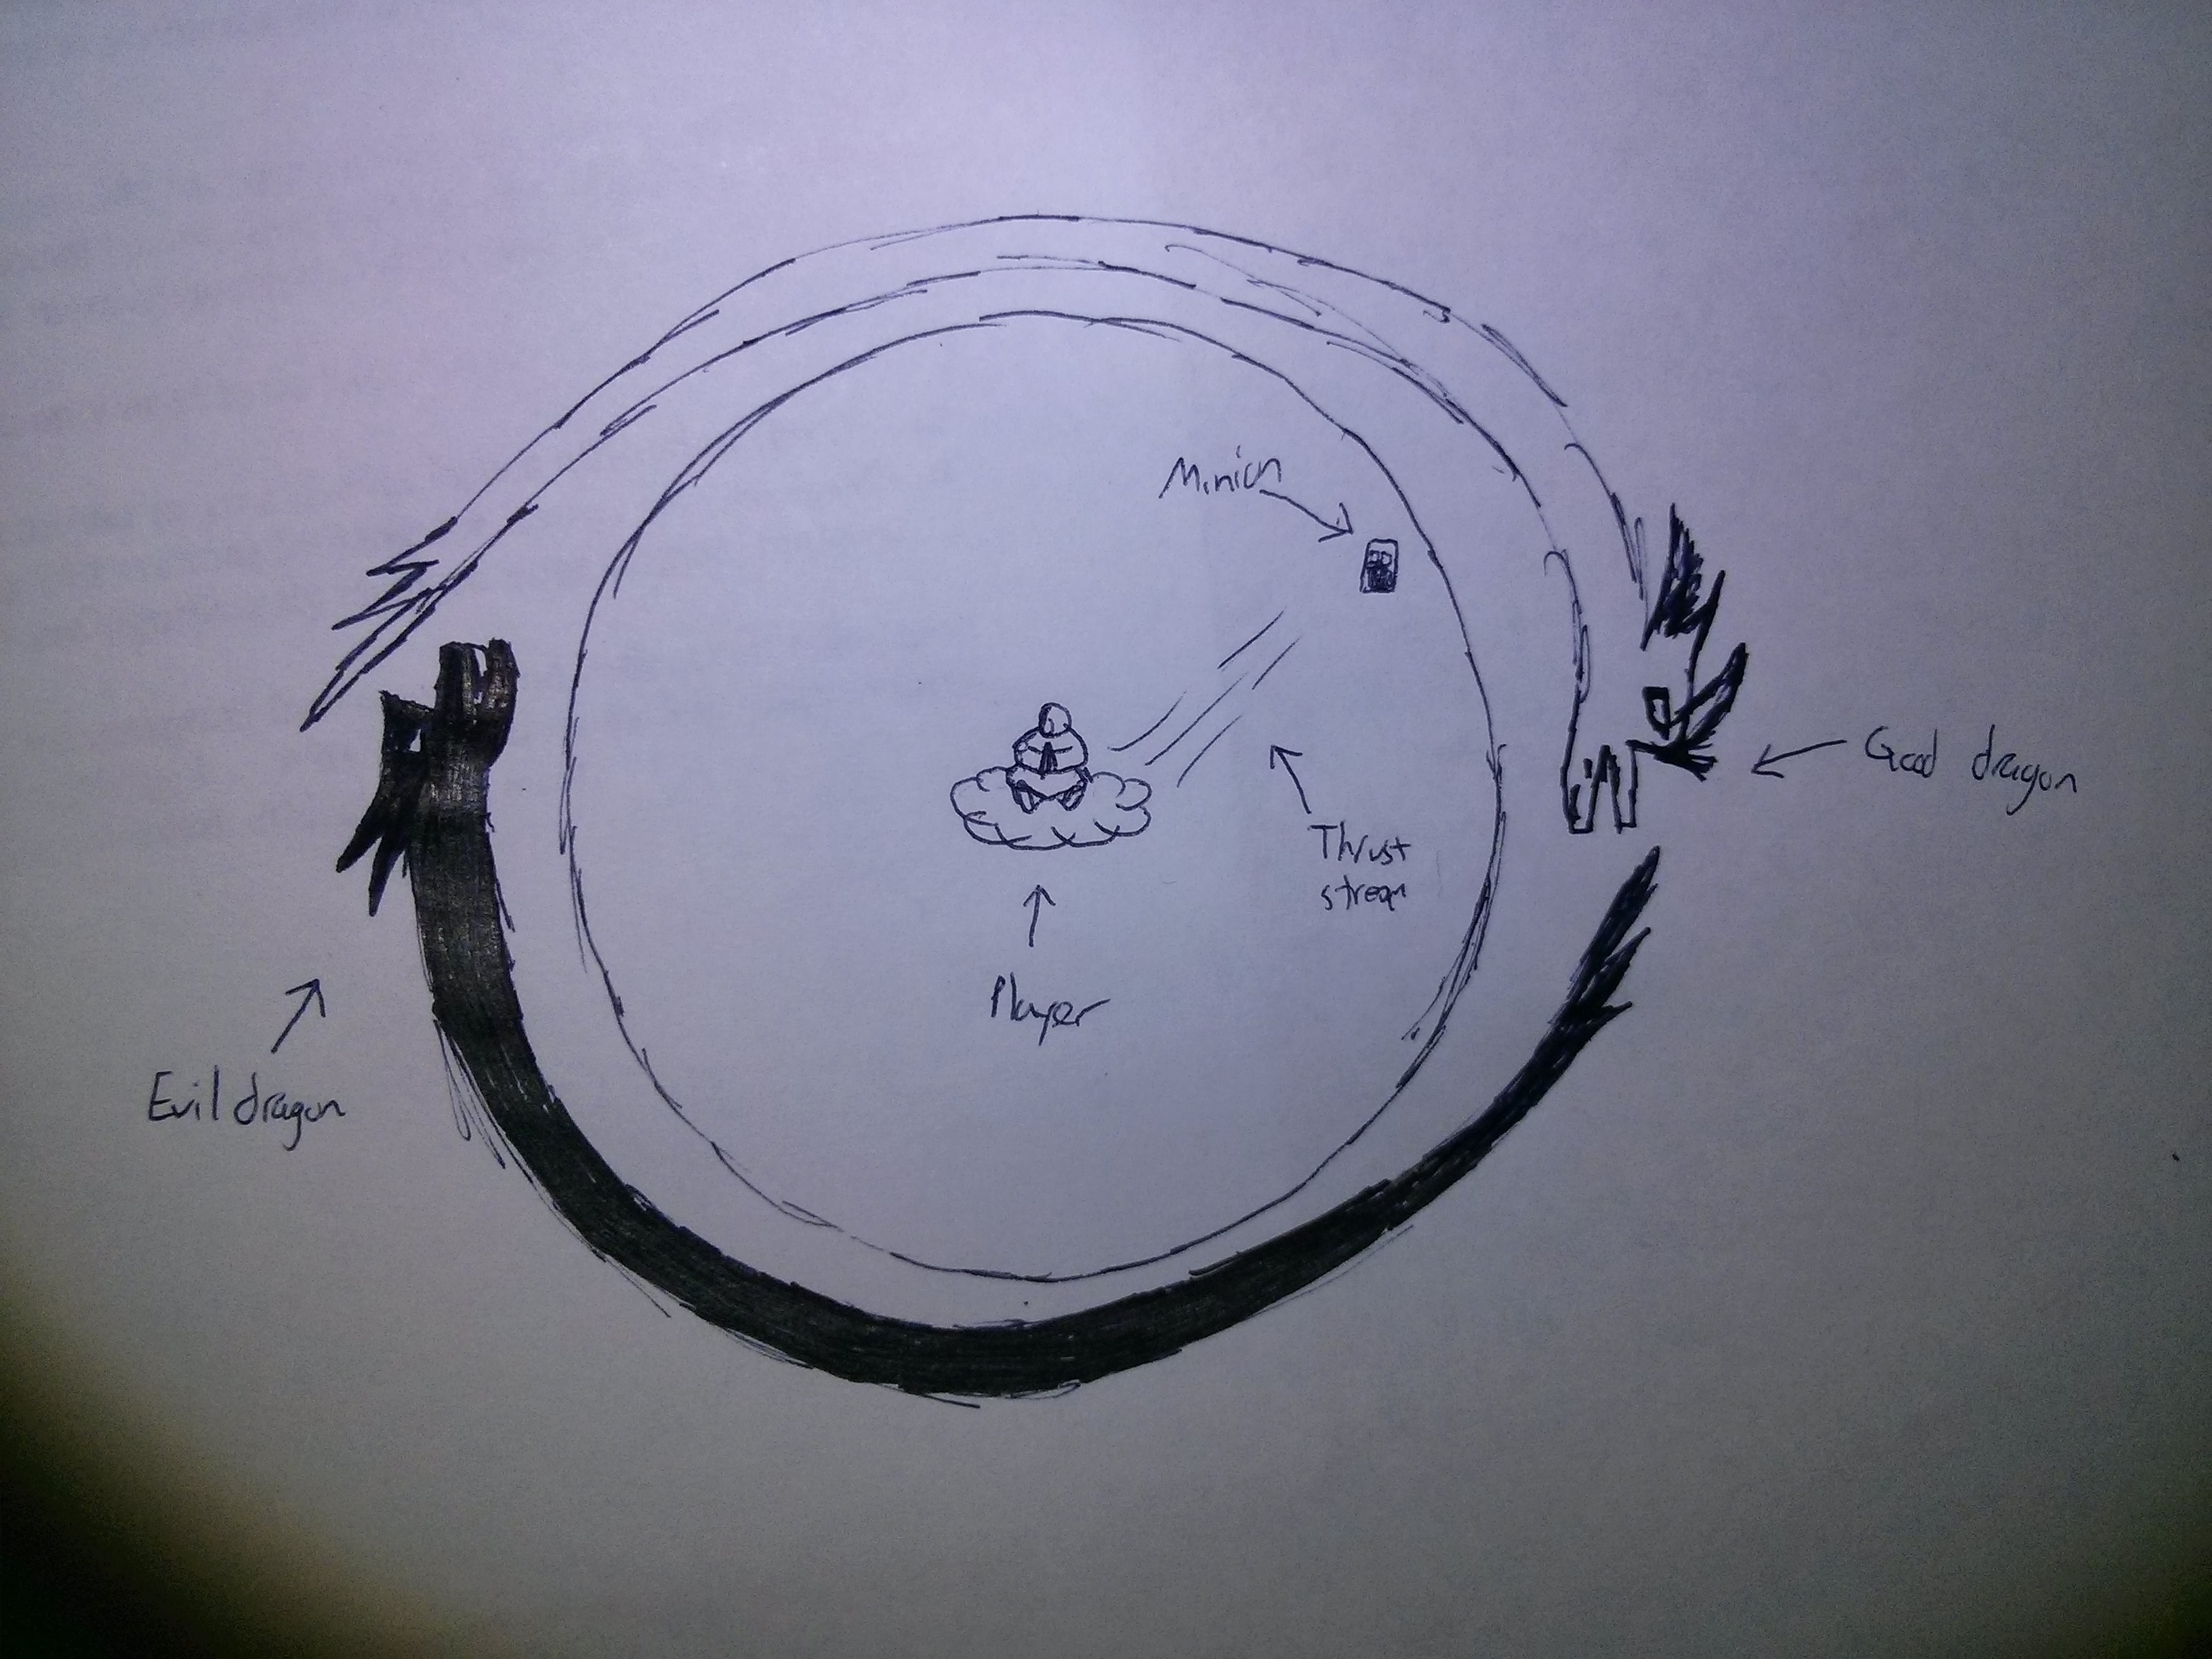 Minion
Good dragon
Thrust
stream
Player
Evil dragon